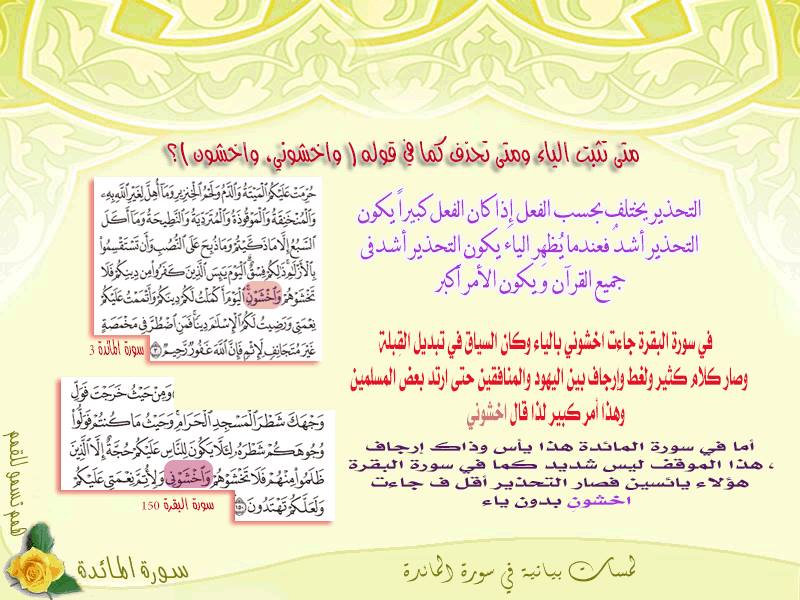 متى تثبت الياء ومتى تحذف كما في قوله ( واخشوني، واخشون )؟
التحذير يختلف بحسب الفعل إذا كان الفعل كبيراً يكون
التحذير أشدُ فعندما يُظهِر الياء يكون التحذير أشد في
جميع القرآن و يكون الأمر أكبر
حُرِّمَتْ عَلَيْكُمُ الْمَيْتَةُ وَالدَّمُ وَلَحْمُ الْخِنزِيرِ وَمَا أُهِلَّ لِغَيْرِ اللَّهِ بِهِ
وَالْمُنْخَنِقَةُ وَالْمَوْقُوذَةُ وَالْمُتَرَدِّيَةُ وَالنَّطِيحَةُ وَمَا أَكَلَ
السَّبُعُ إِلَّا مَا ذَكَّيْتُمْ وَمَا ذُبِحَ عَلَى النُّصُبِ وَأَن تَسْتَقْسِمُوا
بِالْأَزْلَامِ ذَلِكُمْ فِسْقٌ الْيَوْمَ يَئِسَ الَّذِينَ كَفَرُوا مِن دِينِكُمْ فَلَا
تَخْشَوْهُمْ وَاخْشَوْنِ الْيَوْمَ أَكْمَلْتُ لَكُمْ دِينَكُمْ وَأَتْمَمْتُ عَلَيْكُمْ
نِعْمَتِي وَرَضِيتُ لَكُمُ الْإِسْلَامَ دِينًا فَمَنِ اضْطُرَّ فِي مَخْمَصَةٍ
غَيْرَ مُتَجَانِفٍ لِإِثْمٍ فَإِنَّ اللَّهَ غَفُورٌ رَّحِيمٌ ٣
سورة المائدة 3
في سورة البقرة جاءت اخشوني بالياء وكان السياق في تبديل القِبلة
وصار كلام كثير ولغط وإرجاف بين اليهود والمنافقين حتى ارتد بعض المسلمين
وهذا أمر كبير لذا قال اخشوني
وَمِنْ حَيْثُ خَرَجْتَ فَوَلِّ
وَجْهَكَ شَطْرَ الْمَسْجِدِ الْحَرَامِ وَحَيْثُ مَا كُنتُمْ فَوَلُّوا
وُجُوهَكُمْ شَطْرَهُ لِئَلَّا يَكُونَ لِلنَّاسِ عَلَيْكُمْ حُجَّةٌ إِلَّا الَّذِينَ
ظَلَمُوا مِنْهُمْ فَلَا تَخْشَوْهُمْ وَاخْشَوْنِي وَلِأُتِمَّ نِعْمَتِي عَلَيْكُمْ
وَلَعَلَّكُمْ تَهْتَدُونَ ١٥٠
سورة البقرة 150
أما في سورة المائدة هذا يأس وذاك إرجاف
، هذا الموقف ليس شديد كما في سورة البقرة
هؤلاء يائسين فصار التحذير أقل ف جاءت
اخشونِ بدون ياء
همم تسمو للقمم
سورة المائدة
لمسات بيانية في سورة المائدة